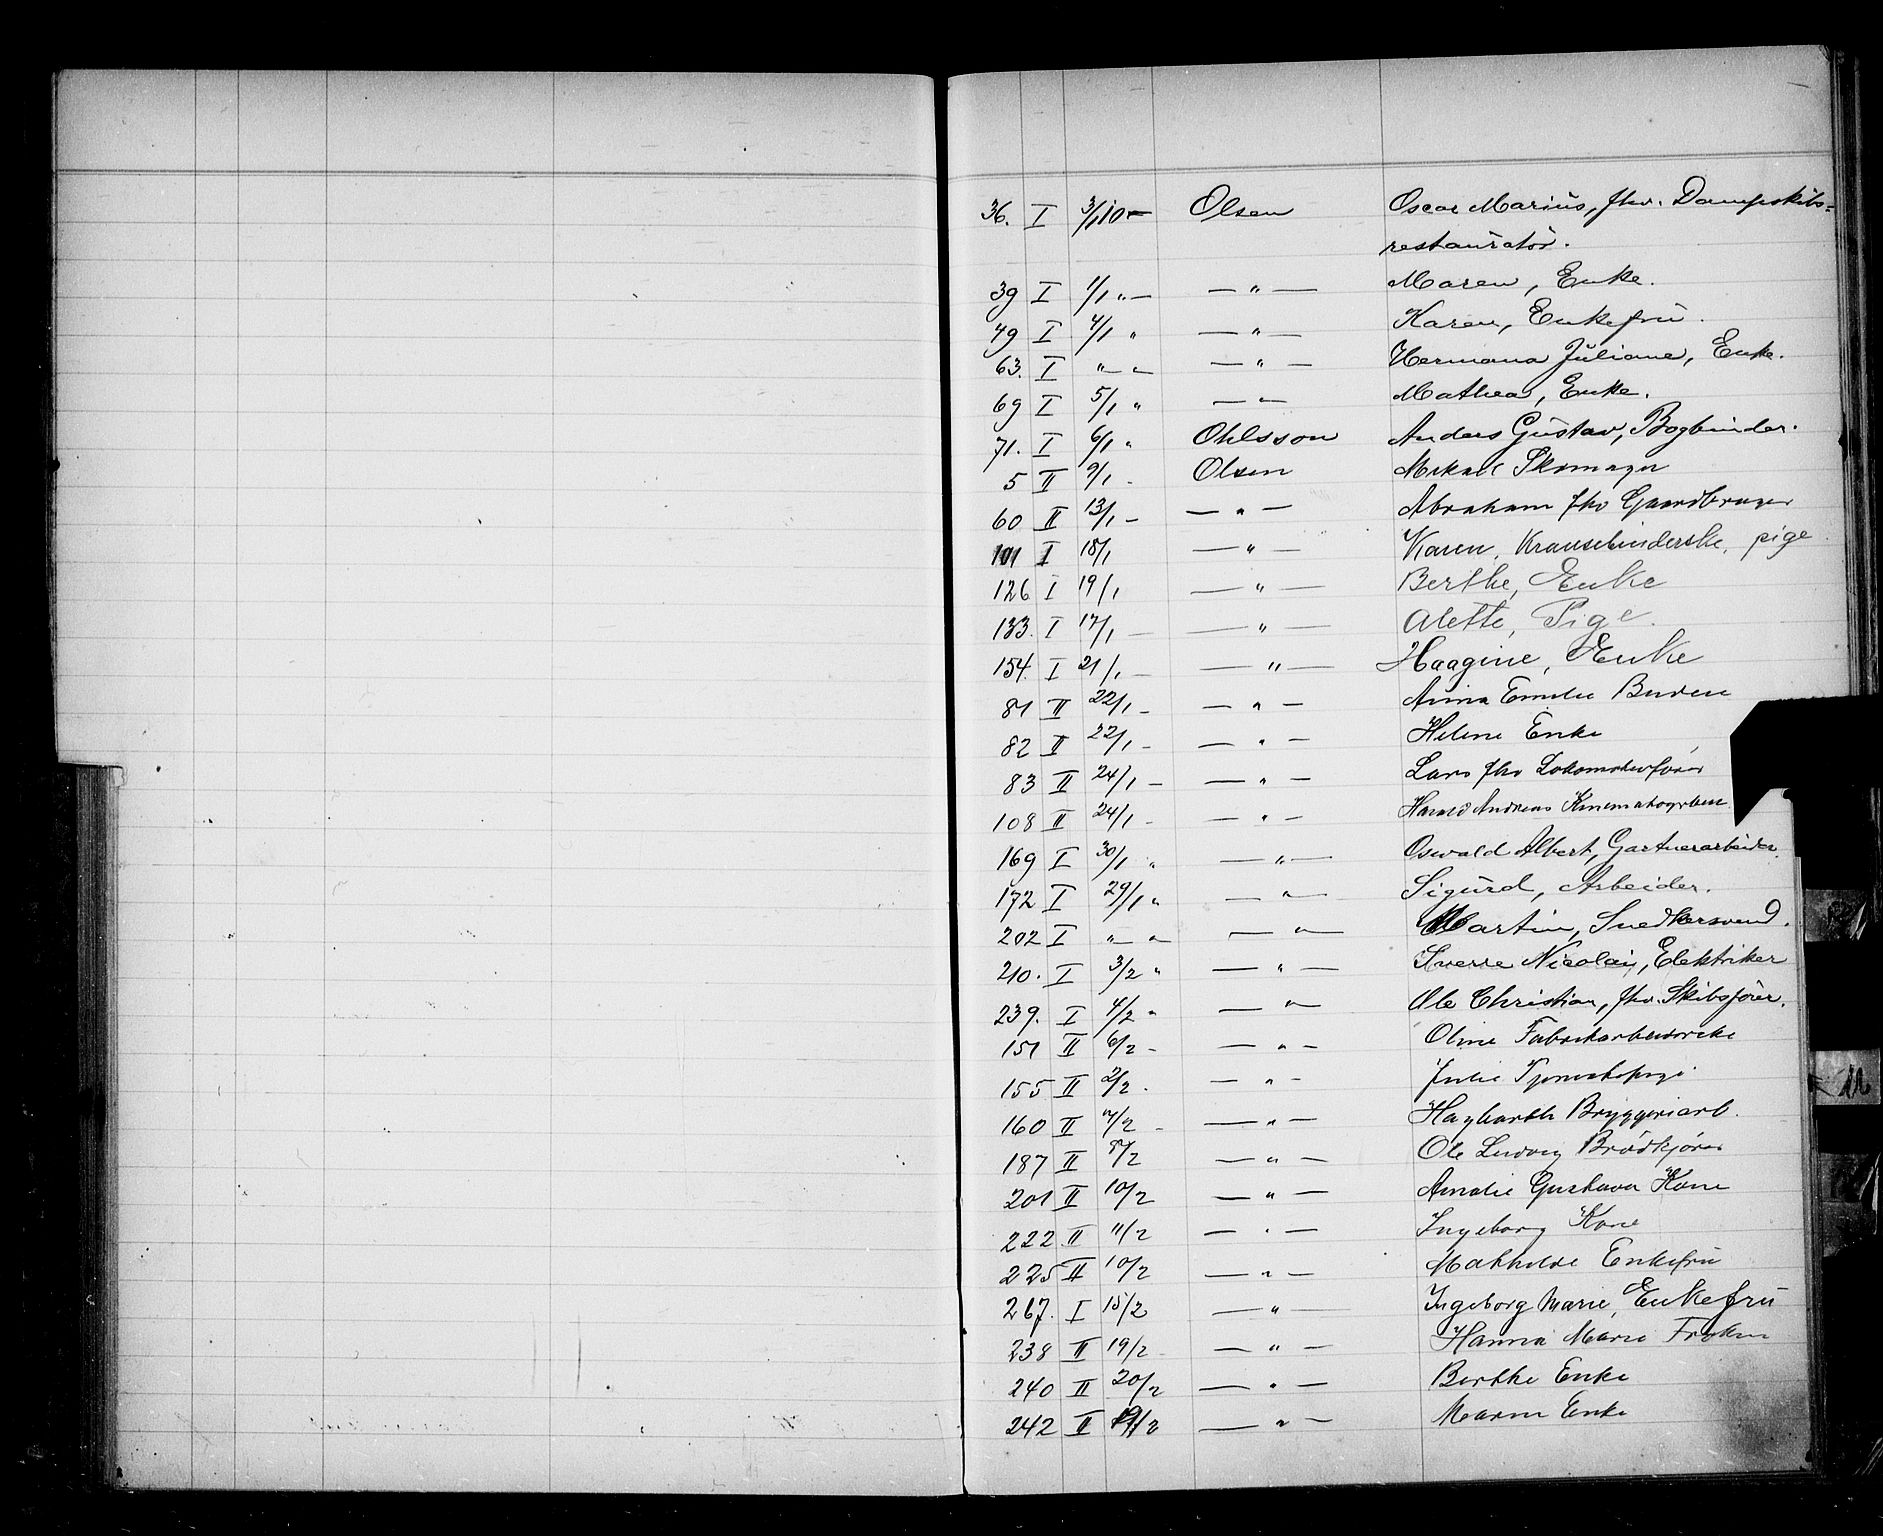 36. I 3/1 10 — Olsen Oscar Marius, fhv. Dampskibs=
restauratör.
39 I 1/1 " — — " — Maren, Enke.
49 I 4/1 " — " — Karen, Enkefru.
63. I " — " — " — Hermana Juliane, Enke.
69 I 5/1 " — " — Mathea, Enke.
71. I 6/1 " Ohlsson Anders Gustav, Bogbinder.
5 II 9/1 - Olsen Mikael Skomager
60 II 13/1 - — " — Abraham fhv Gaardbruger
101 I 18/1 — " — Karen, Kransebinderske, pige.
126 I 19/1 — " — Berthe, Enke
133. I 17/1 — — " — Alette, Pige.
154. I 21/1 — — " — Haagine, Enke
81 II 22/1 - — " — Anna Emilie
82 II 22/1 - — " — Helene Enke
83 II 24/1 — — " — Lars fhv Lokomotivfører
108 II 24/1 - — " — Harald Andreas
169 I 30/1 " — " — Oswald Albert, Gartnerarbeider.
172 I 29/1 " — " — Sigurd, Arbeider.
202 I " — " — " — Martin, Snedkersvend.
210. I 3/2 " — " — Sverre Nicolai, Elektriker
239. I 4/2 " — " — Ole Christian, fhv. Skibsfører.
151 II 6/2 - — " — Oline Fabrikarbeiderske
155 II 2/2 . — " — Julie
160 II 7/2 - — " — Hagbarth Bryggeriarb.
187 II 8/2 — " — Ole Ludvig Brødkjører
201 II 10/2 — " — Amalie Gustava Kone
222 II 11/2 — " — Ingeborg Kone
225 II 10/2 — " — Mathilde Enkefru
267. I 15/2 — " — Ingeborg Marie, Enkefru
238 II 19/2 - — " — Hanna Marie Frøken
240 II 20/2 — " — Berthe Enke
242 II 19/2 — " — Maren Enke